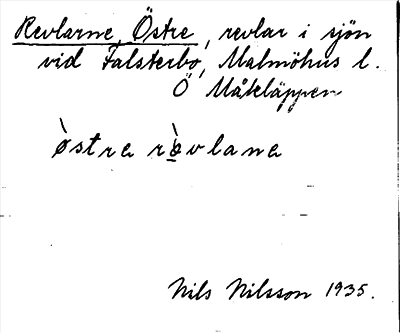 Revlarne, Östre, revlar i sjön
vid Falsterbo, Malmöhus l.
Ö Måkläppen
ø̀stra rø̀vlana
Nils Nilsson 1935.